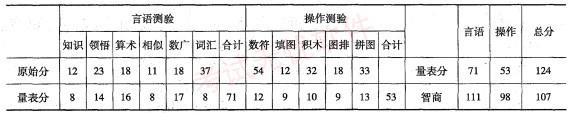 言语测验 操作测验 言语 操作 总分
知识 领悟 算术 相似 数广 词汇 合计 数符 填图 积木 图排 拼图 合计
原始分 12 23 18 11 18 37 54 12 32 18 33 量表分 71 53 124
量表分 8 14 16 8 17 8 71 12 9 10 9 13 53 智商 111 98 107